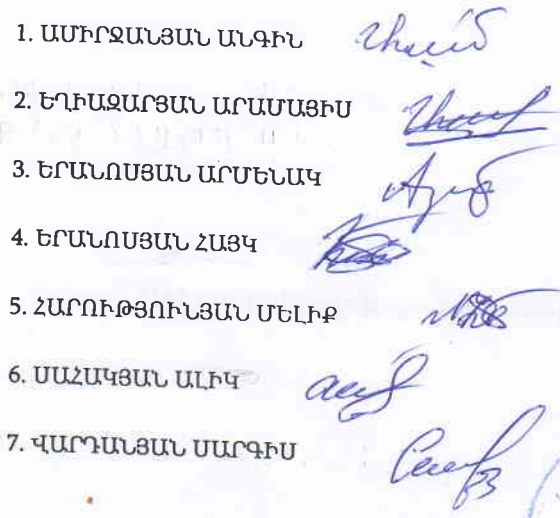 1. ԱՄԻՐՋԱՆՅԱՆ ԱՆԳԻՆ
2. ԵՂԻԱԶԱՐՅԱՆ ԱՐԱՄԱՅԻՍ
3. ԵՐԱՆՈՍՅԱՆ ԱՐՄԵՆԱԿ
4. ԵՐԱՆՈՍՅԱՆ ՀԱՅԿ
5. ՀԱՐՈՒԹՅՈՒՆՅԱՆ ՄԵԼԻՔ
6. ՍԱՀԱԿՅԱՆ ԱԼԻԿ
7. ՎԱՐԴԱՆՅԱՆ ՍԱՐԳԻՍ